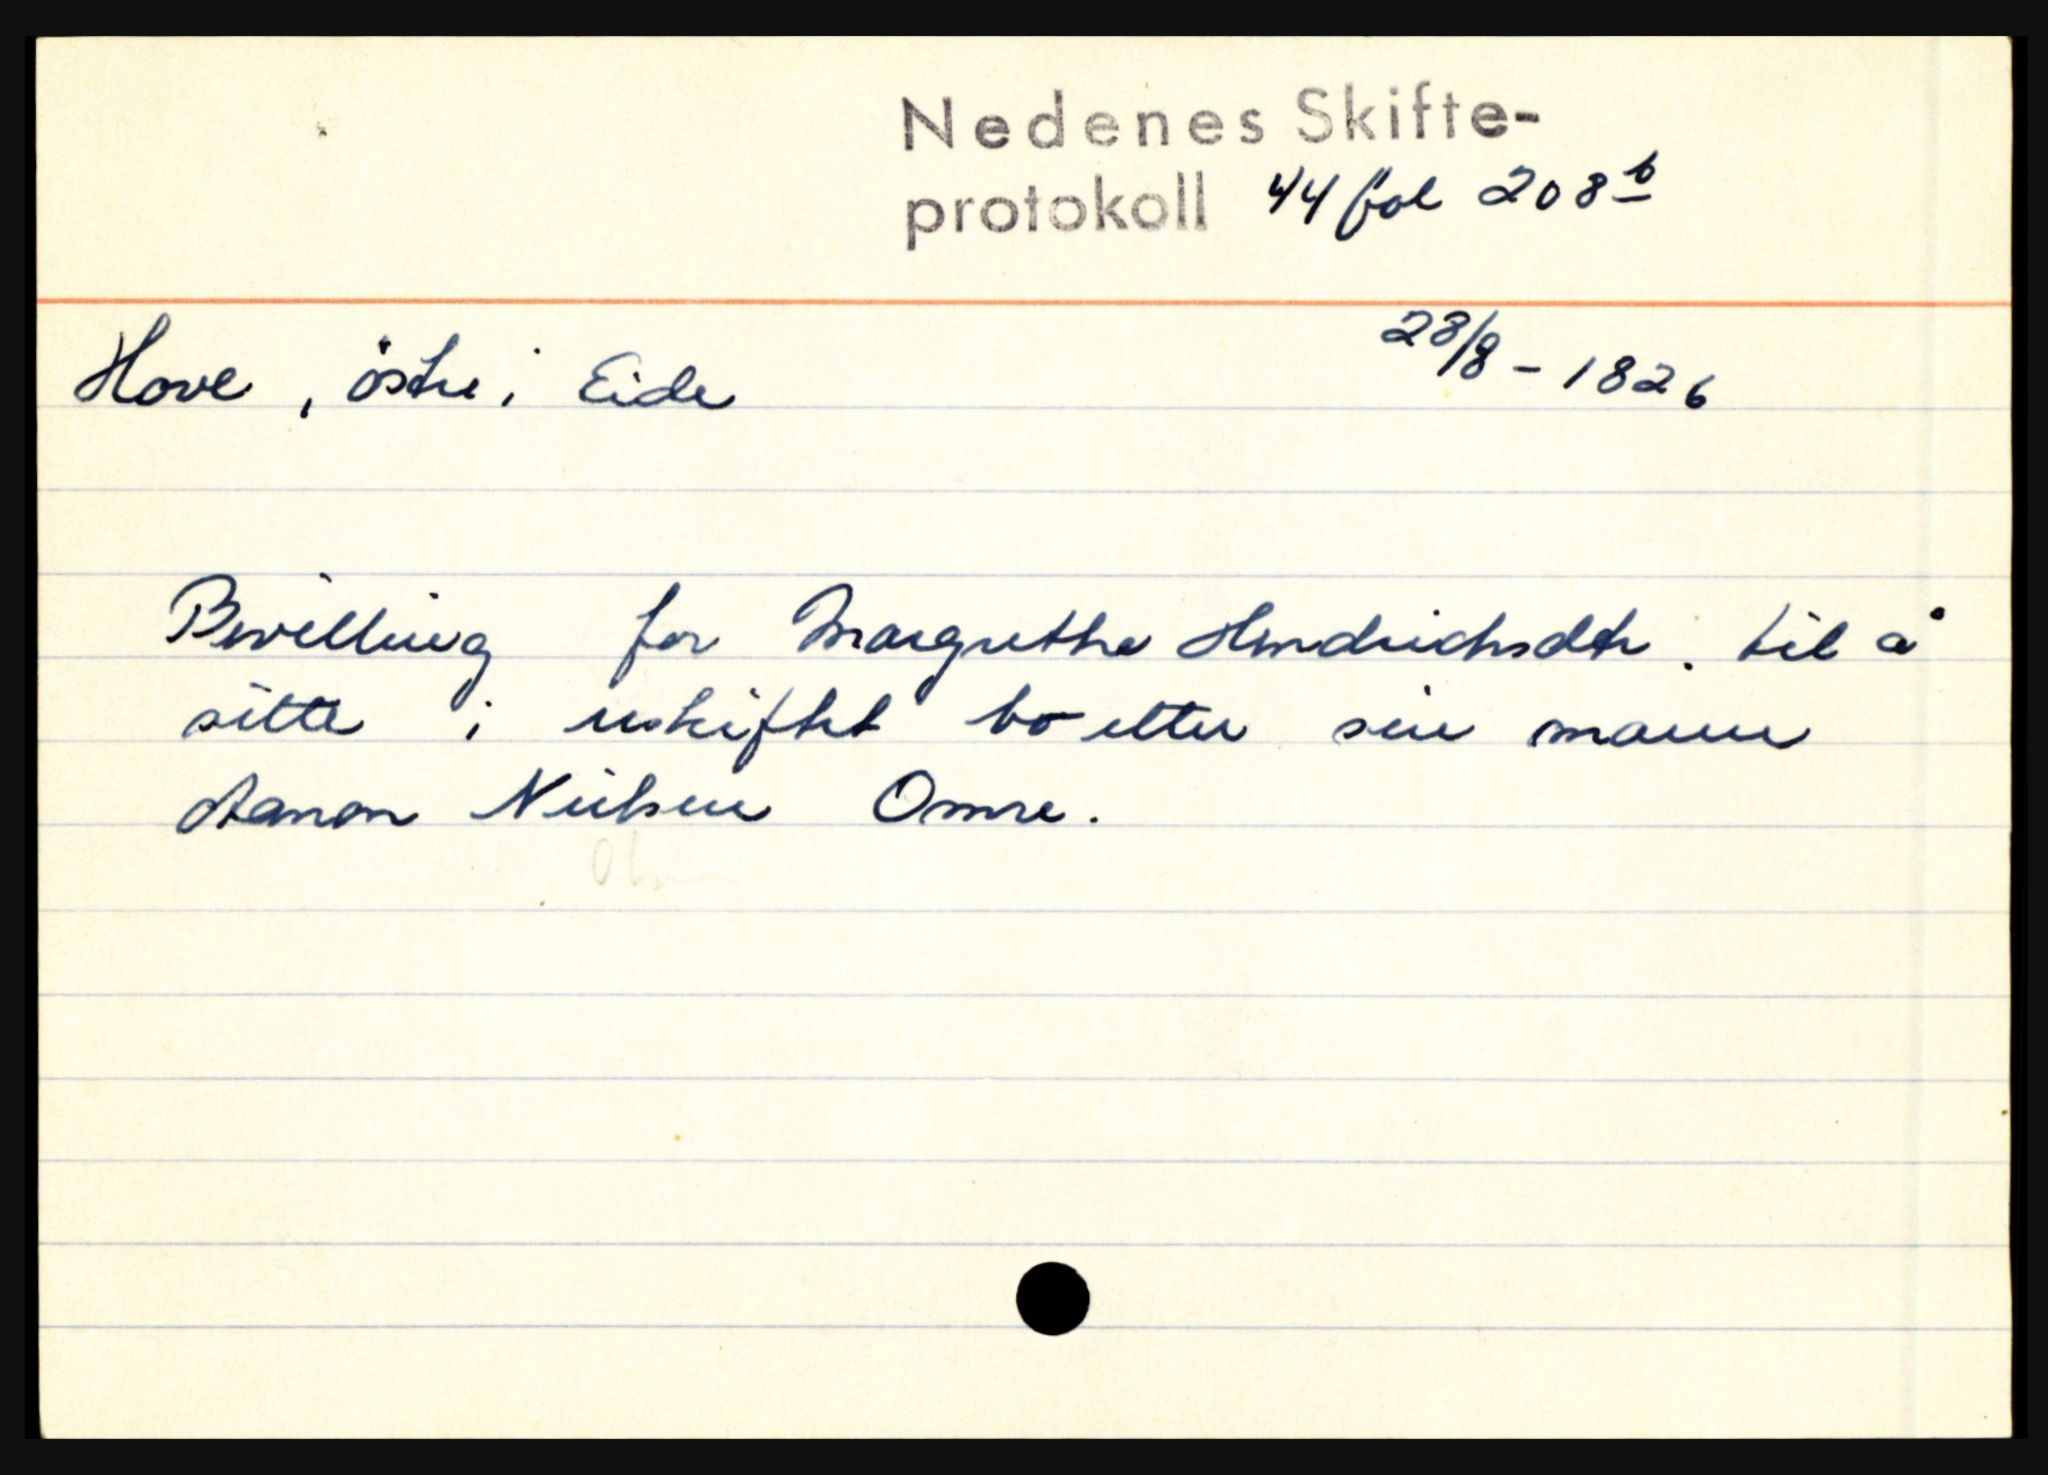 Nedenes Skifte-
protokoll 44 fol 208 b
Hove, östre i Eide 28/8-1826
Bevilling for Margrethe Hendrichsdtr. til å
sitte i uskiftet bo etter sin mann
Aanon Nielsen Omre.